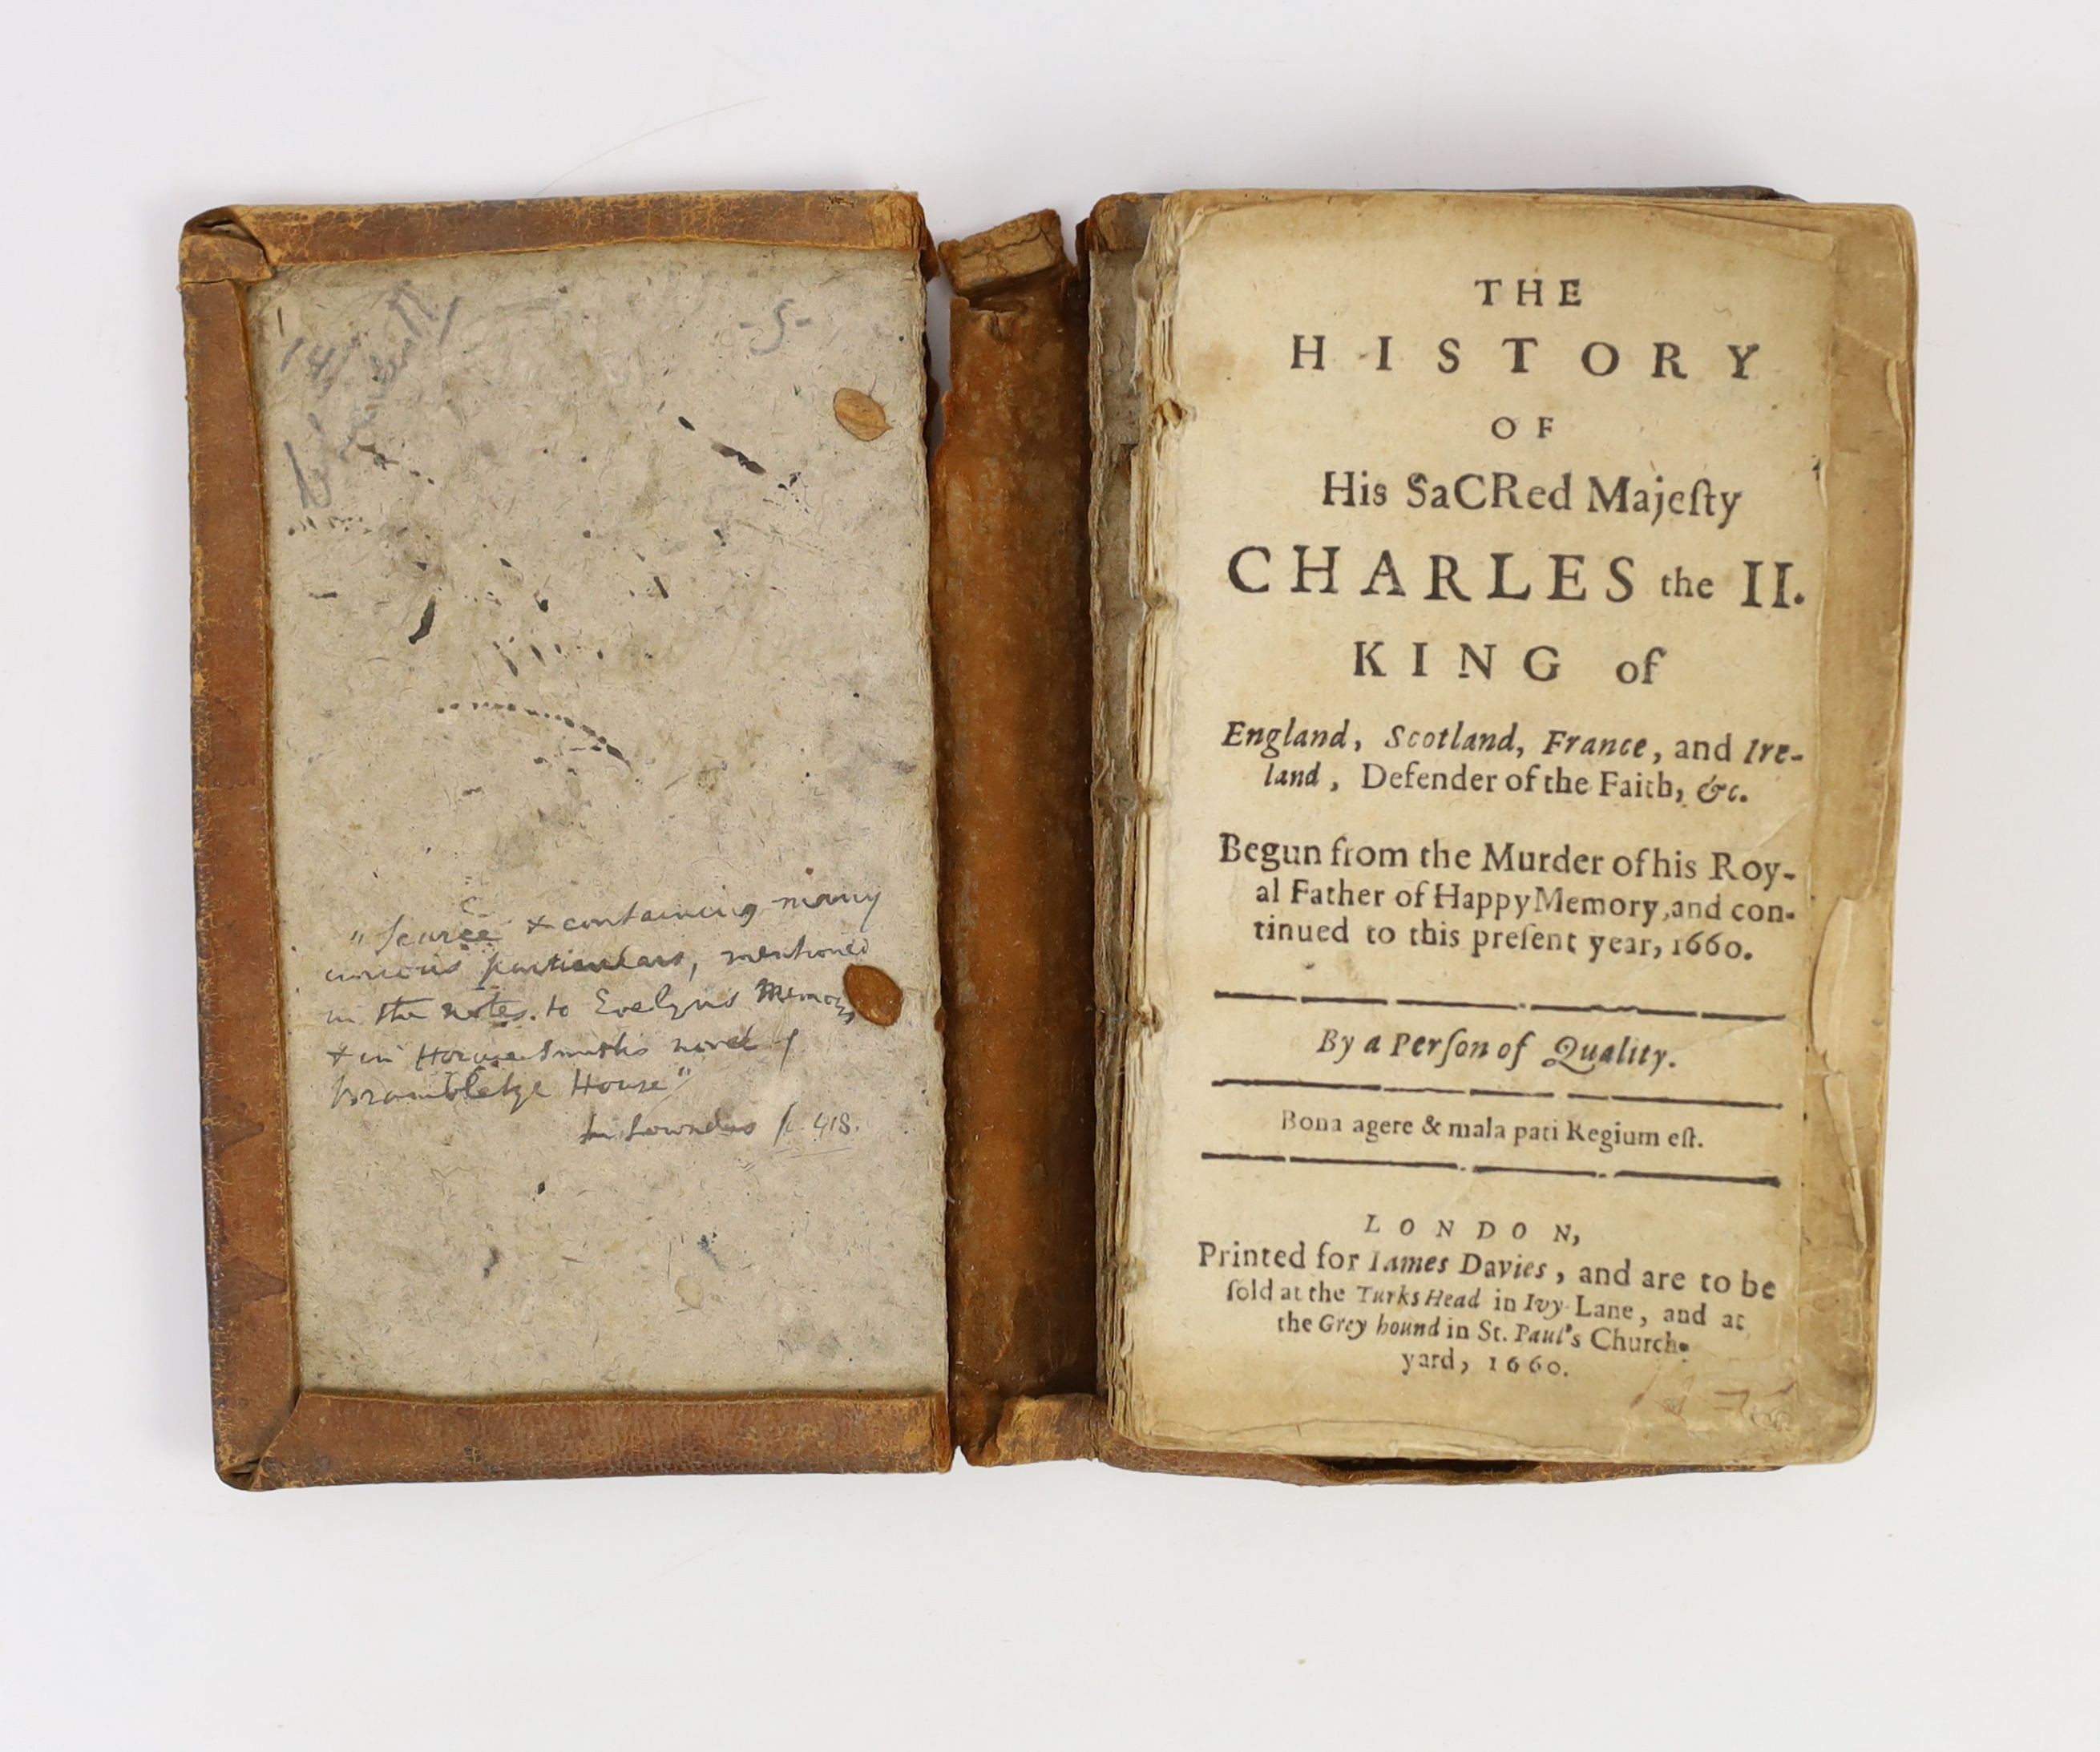 -5-
"Scarce & containing many
curious particulars, mentioned
in the notes to Evelyns
& in Horace Smiths novel of
Brambletye House"
Lowndes p. 418.
THE
HISTORY
OF
His SaCRed Majeſty
CHARLES the II.
KING of
England, Scotland, France, and Ire-
land, Defender of the Faith, &c.
Begun from the Murder of his Roy-
al Father of Happy Memory, and con-
tinued to this preſent year, 1660.
By a Perſon of Quality.
Bona agere & mala pati Regium eſt.
LONDON,
Printed for Iames Davies, and are to be
ſold at the Turks Head in Ivy Lane, and at
the Grey hound in St. Paul's Church-
yard, 1660.